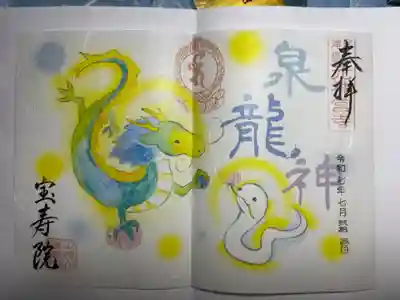 奉拝
令和七年 七月
泉龍神
宝寿院